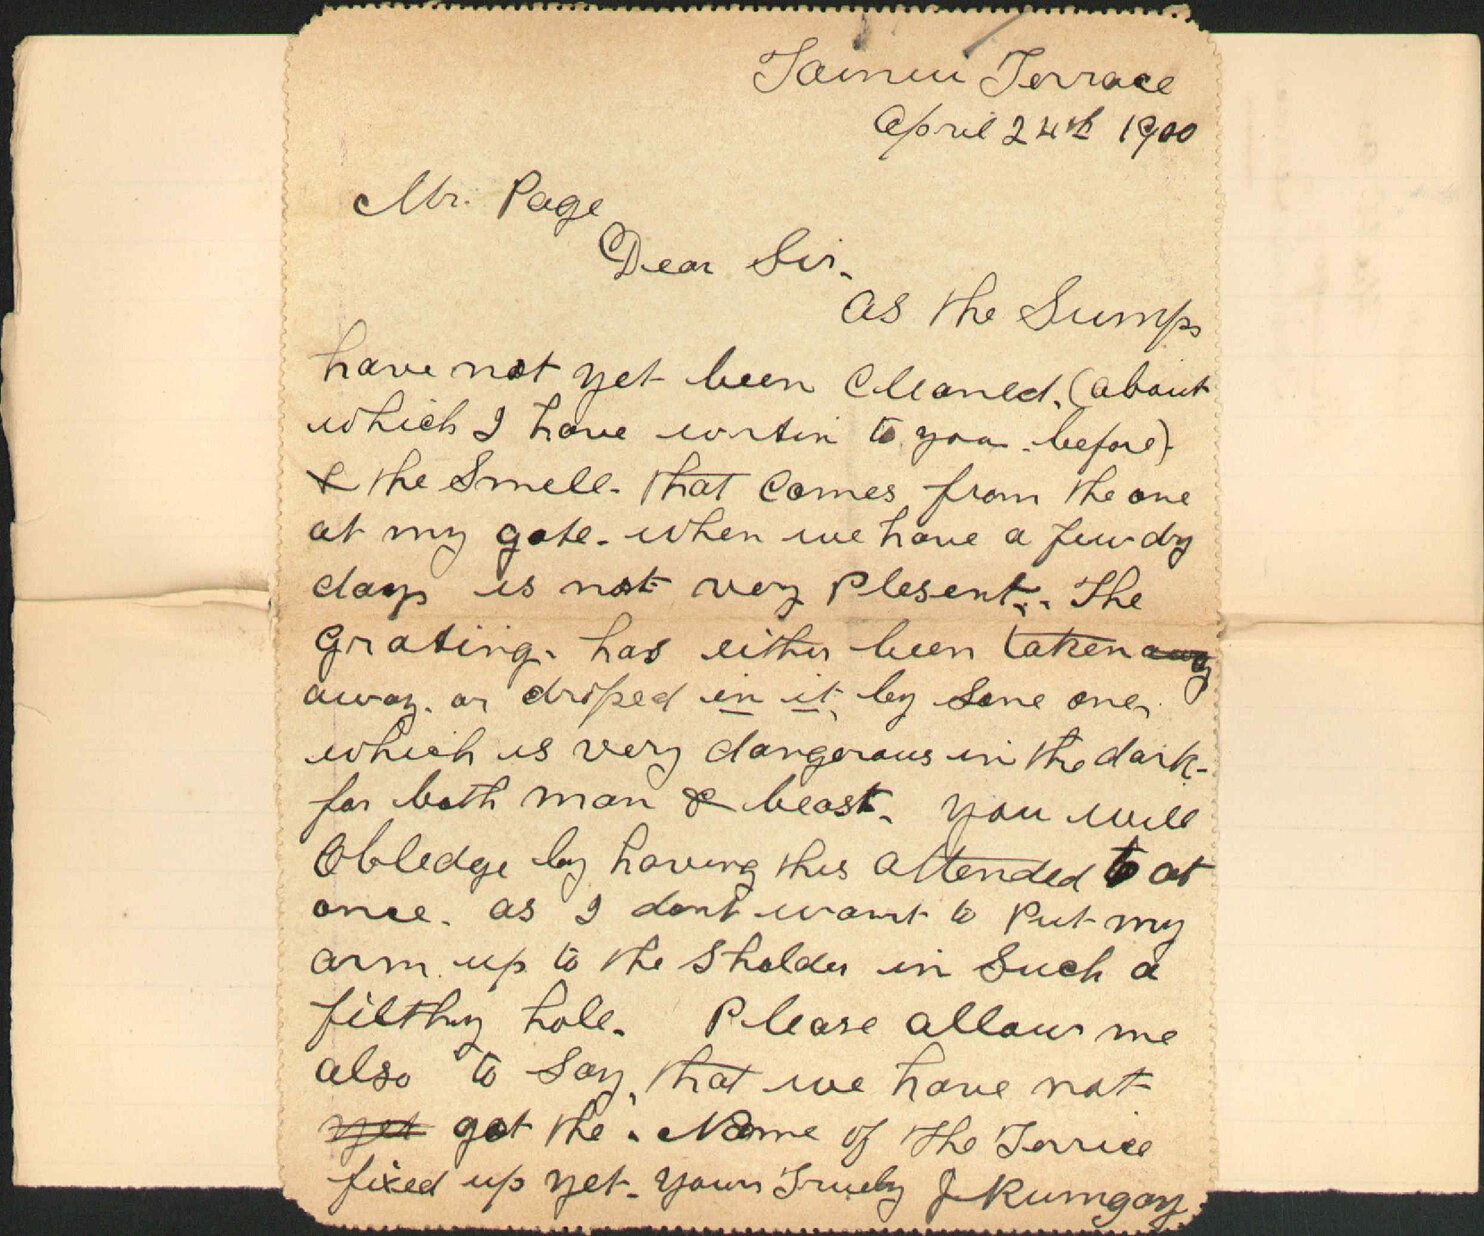 Tainui Terrace
April 24th 1900
Mr. Page
Dear Sir.
as the Sumps
have not yet been Cleaned. (about
which I have writin to you before).
& the Smell. that Comes from the one
at my gate. when we have a few dry
days is not very Plesent. The
Grating. has either been taken away
away. or droped in it, by Some one,
which is very dangerous in the dark.
for both man & beast. you will
Obledge by having this attended to at
once. as I dont want to Put my
arm up to the Sholder in Such a
filthy hole. Please allow me
also to Say, that we have not
yet got the. Name of The Terrice
fixed up yet. Yours Truely J Rumgay